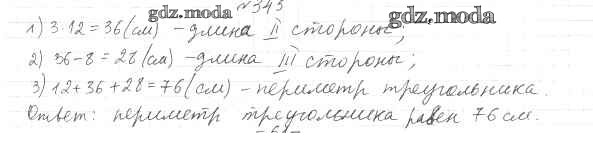 №343
gdz.moda gdz.moda
1) 3·12=36(см) – длина II стороны;
2) 36-8=28(см) – длина III стороны;
3) 12+36+28=76(см) – периметр треугольника.
Ответ: периметр треугольника равен 76 см.